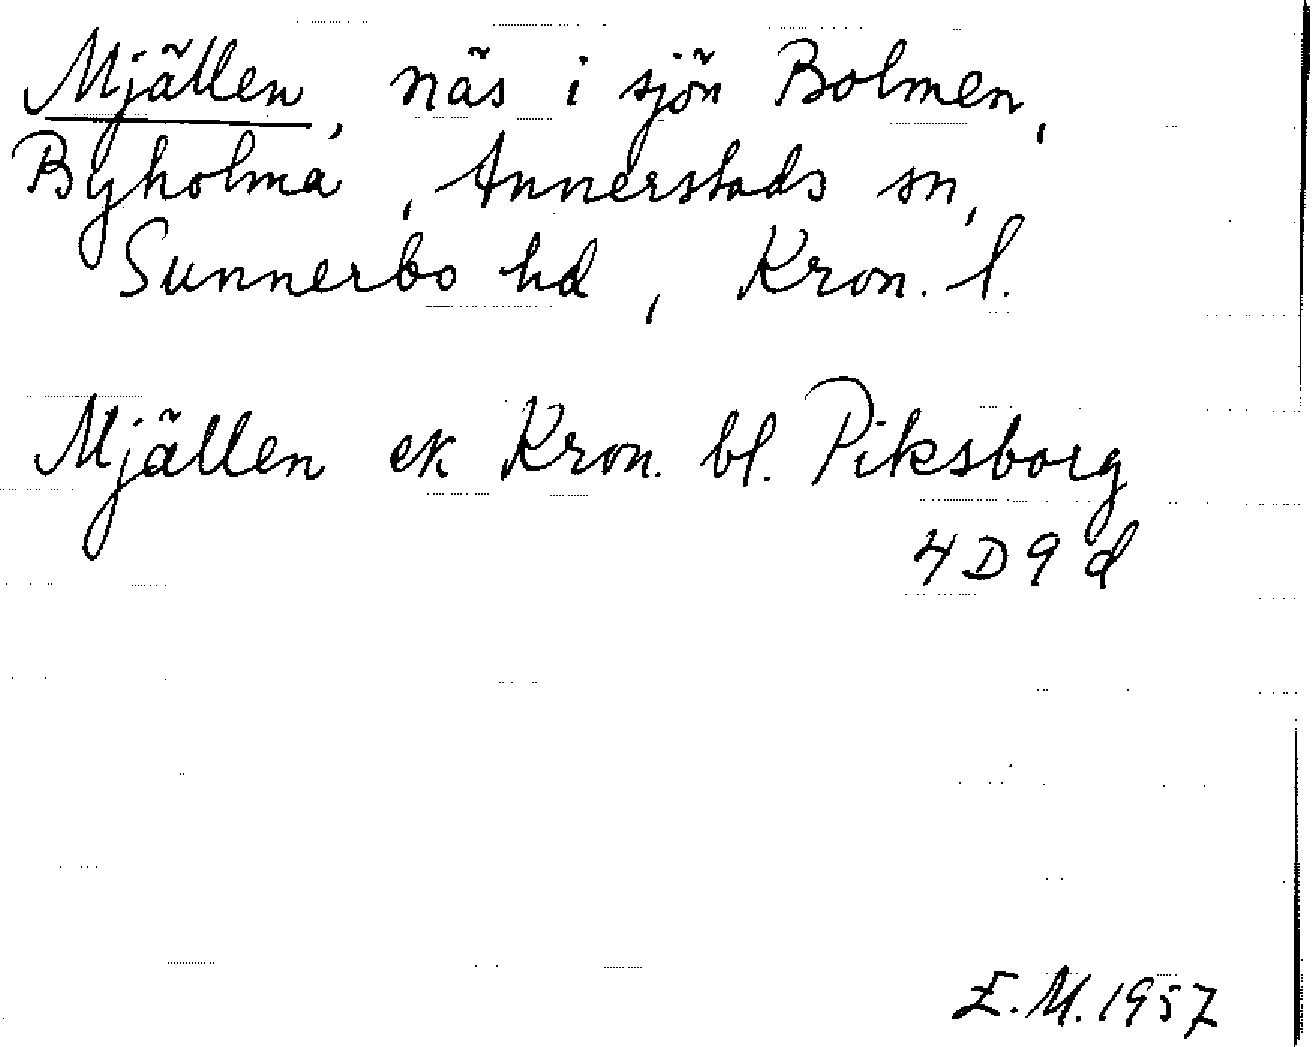 Mjällen, näs i sjön Bolmen,
Byholma, Annerstads sn,
Sunnerbo hd, Kron. l.
Mjällen ek Kron. bl. Piksborg
4D9d
E.M. 1957